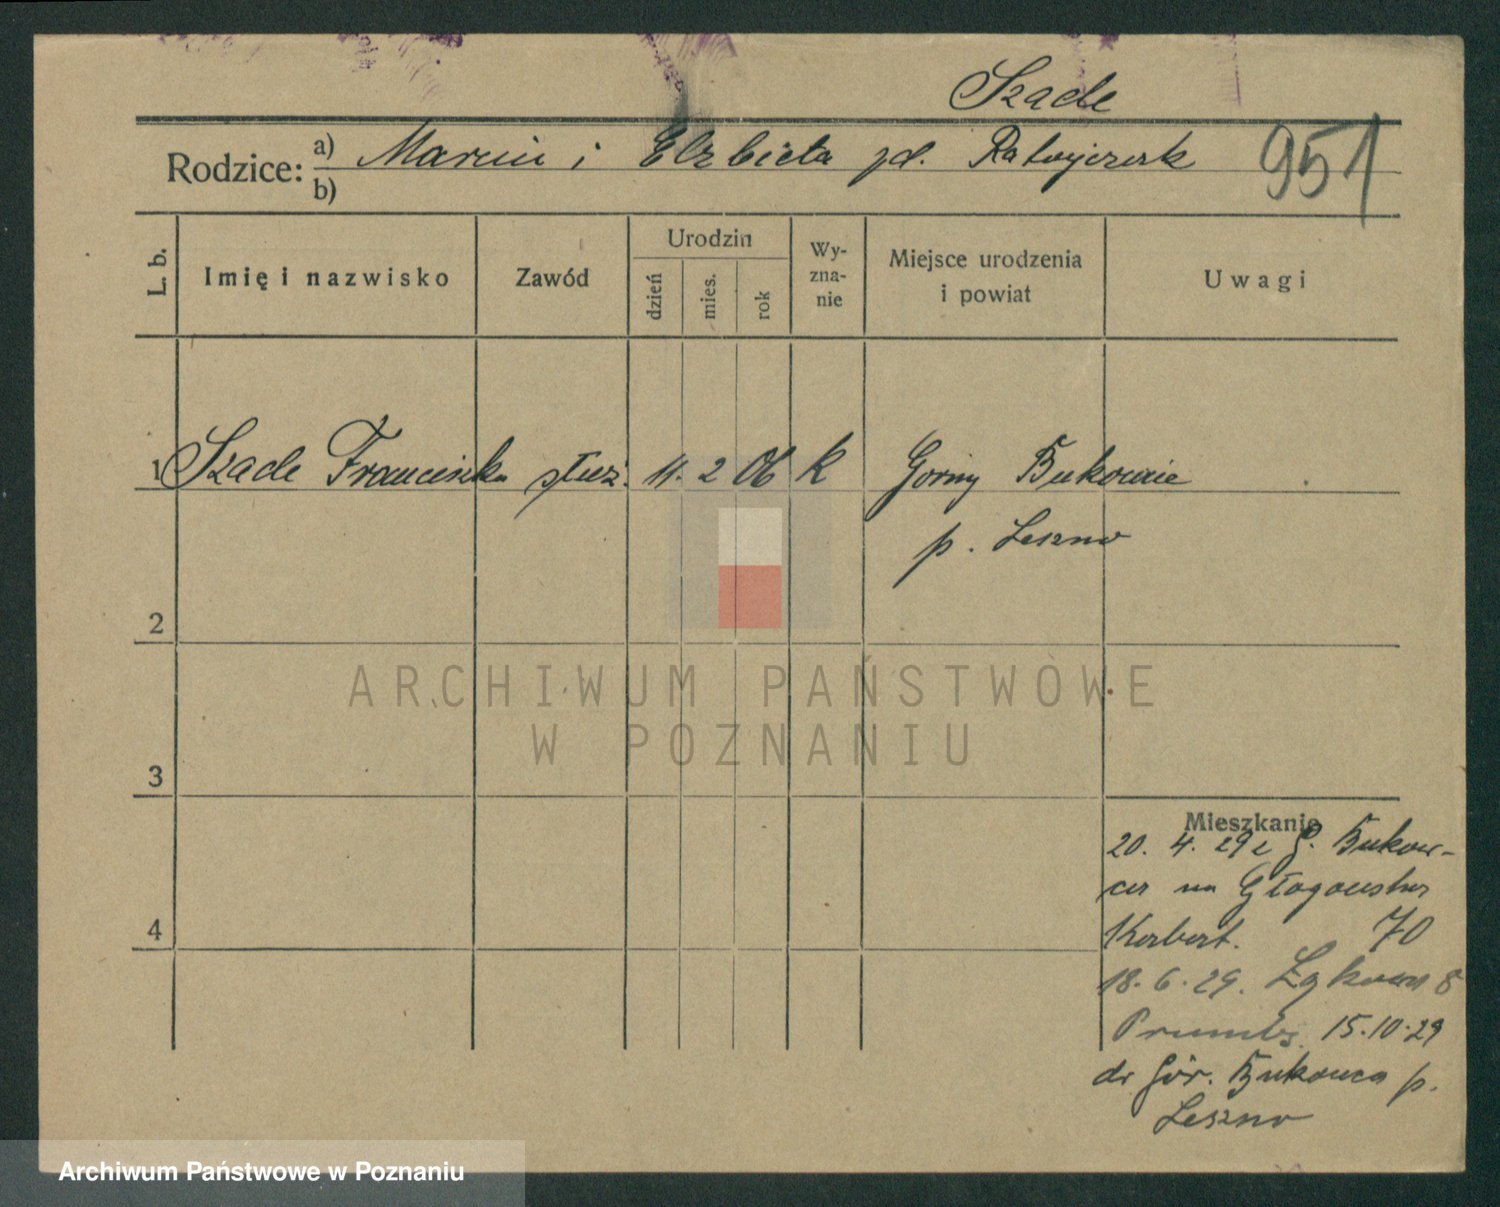 Szade
Rodzice: a) Marcin i Elzbieta zd. Ratajczak 951
b)
L. b. Imię i nazwisko Zawód Urodzin dzień mies. rok Wyznanie Miejsce urodzenia i powiat Uwagi
1 Szade Franciszka służ. 11. 2 06 K Gorny Bukowiec
p. Leszno
2
3
4
Mieszkanie
20. 4. 29 z G. Bukow-
ca na Głogowska
70
18. 6. 29. 8
15.10.29
do Gór. Bukowca p.
Leszno
ARCHIWUM PAŃSTWOWE
W POZNANIU
Archiwum Państwowe w Poznaniu